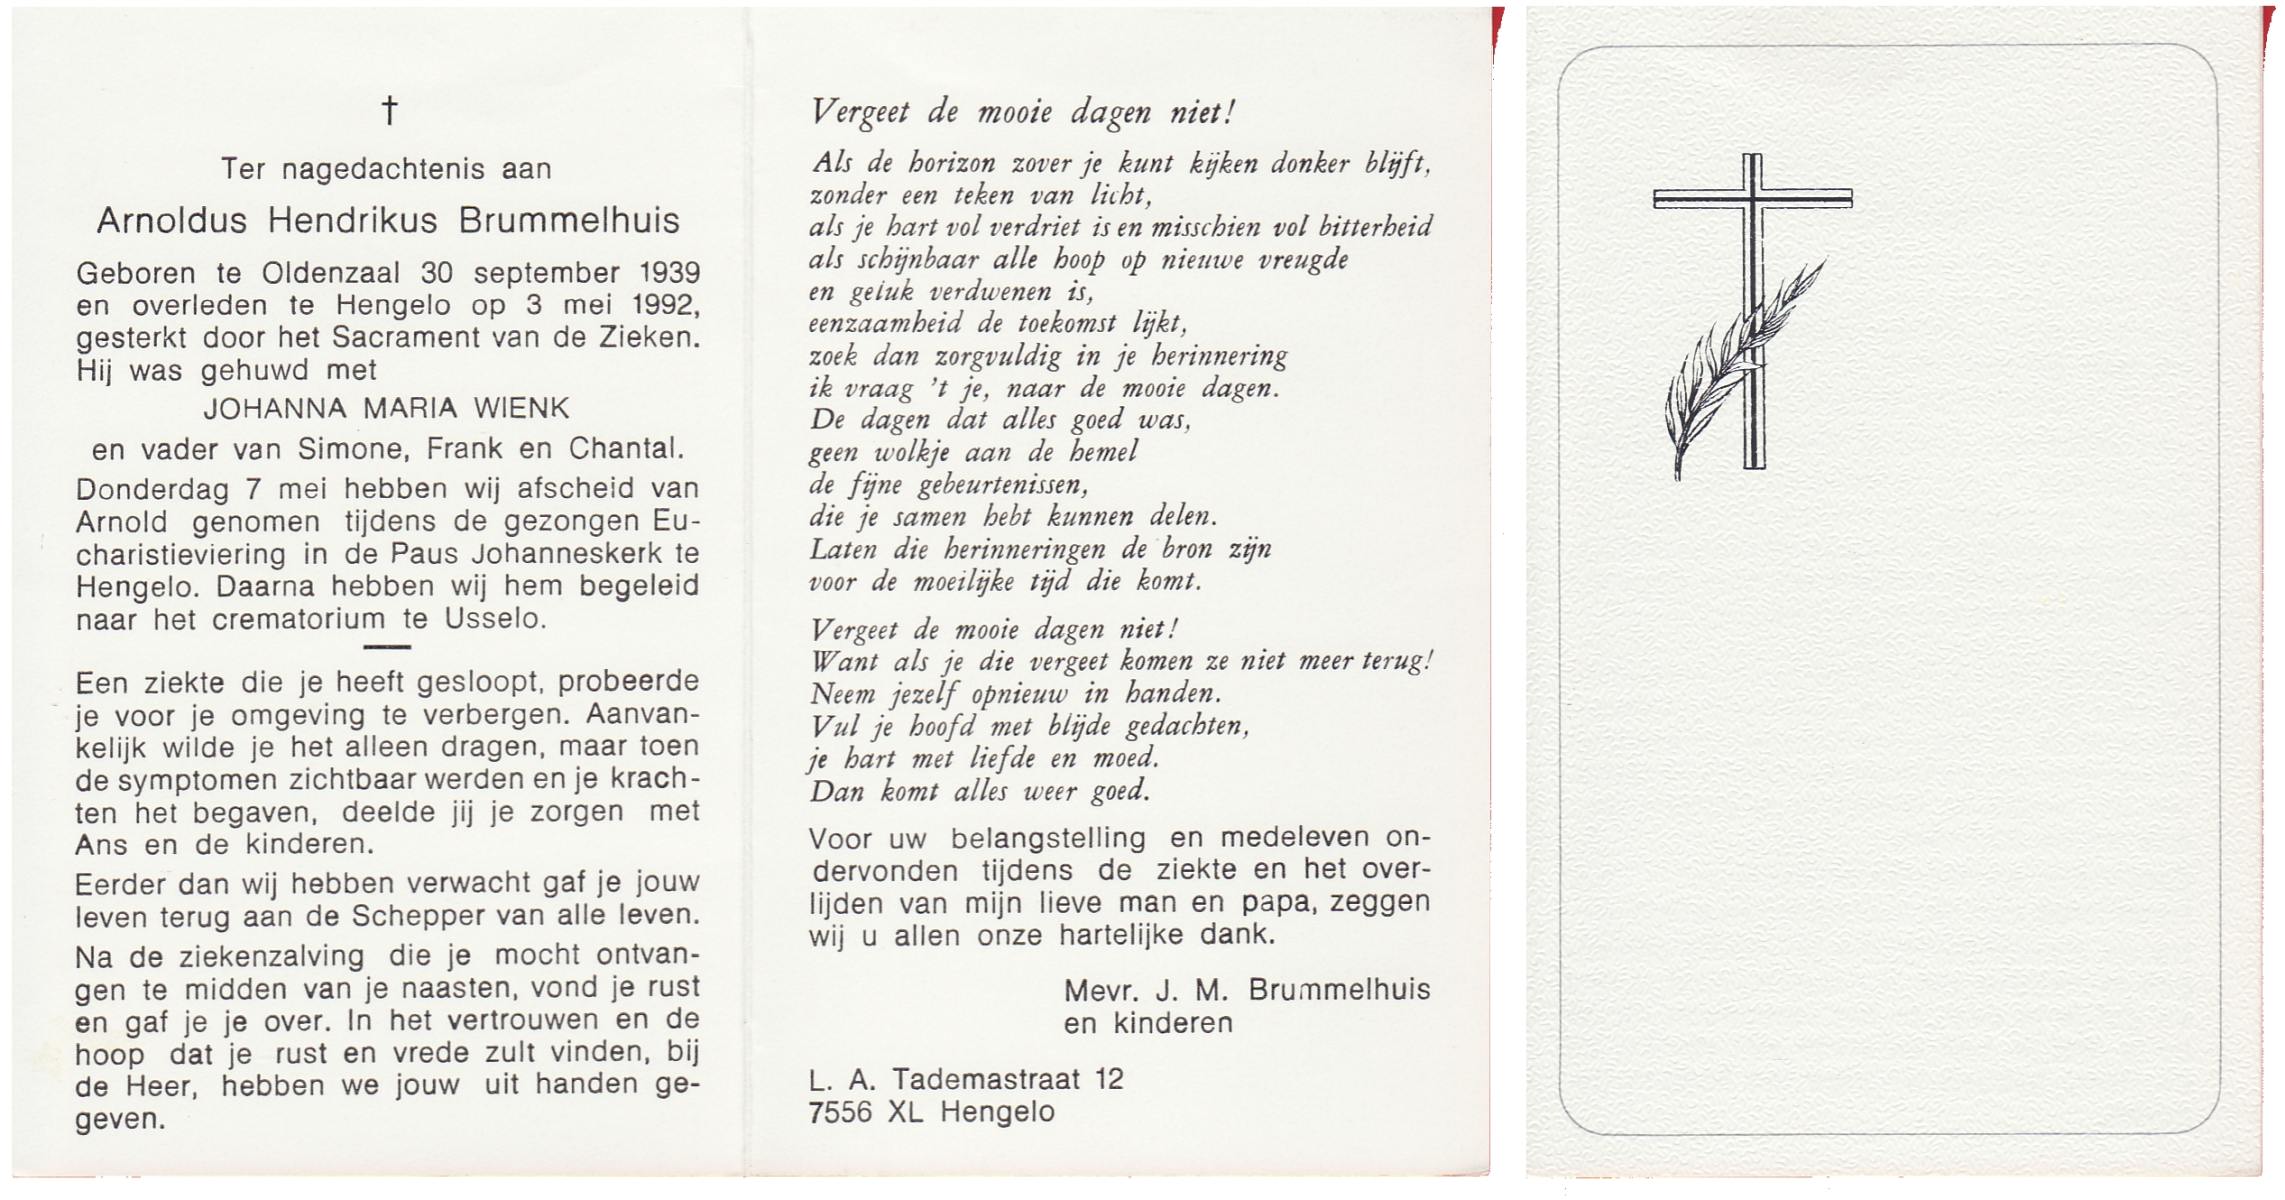 †
Ter nagedachtenis aan
Arnoldus Hendrikus Brummelhuis
Geboren te Oldenzaal 30 september 1939
en overleden te Hengelo op 3 mei 1992,
gesterkt door het Sacrament van de Zieken.
Hij was gehuwd met
JOHANNA MARIA WIENK
en vader van Simone, Frank en Chantal.
Donderdag 7 mei hebben wij afscheid van
Arnold genomen tijdens de gezongen Eu-
charistieviering in de Paus Johanneskerk te
Hengelo. Daarna hebben wij hem begeleid
naar het crematorium te Usselo.
Een ziekte die je heeft gesloopt, probeerde
je voor je omgeving te verbergen. Aanvan-
kelijk wilde je het alleen dragen, maar toen
de symptomen zichtbaar werden en je krach-
ten het begaven, deelde jij je zorgen met
Ans en de kinderen.
Eerder dan wij hebben verwacht gaf je jouw
leven terug aan de Schepper van alle leven.
Na de ziekenzalving die je mocht ontvan-
gen te midden van je naasten, vond je rust
en gaf je je over. In het vertrouwen en de
hoop dat je rust en vrede zult vinden, bij
de Heer, hebben we jouw uit handen ge-
geven.
Vergeet de mooie dagen niet!
Als de horizon zover je kunt kijken donker blijft,
zonder een teken van licht,
als je hart vol verdriet is en misschien vol bitterheid
als schijnbaar alle hoop op nieuwe vreugde
en geluk verdwenen is,
eenzaamheid de toekomst lijkt,
zoek dan zorgvuldig in je herinnering
ik vraag 't je, naar de mooie dagen.
De dagen dat alles goed was,
geen wolkje aan de hemel
de fijne gebeurtenissen,
die je samen hebt kunnen delen.
Laten die herinneringen de bron zijn
voor de moeilijke tijd die komt.
Vergeet de mooie dagen niet!
Want als je die vergeet komen ze niet meer terug!
Neem jezelf opnieuw in handen.
Vul je hoofd met blijde gedachten,
je hart met liefde en moed.
Dan komt alles weer goed.
Voor uw belangstelling en medeleven on-
dervonden tijdens de ziekte en het over-
lijden van mijn lieve man en papa, zeggen
wij u allen onze hartelijke dank.
Mevr. J. M. Brummelhuis
en kinderen
L. A. Tademastraat 12
7556 XL Hengelo